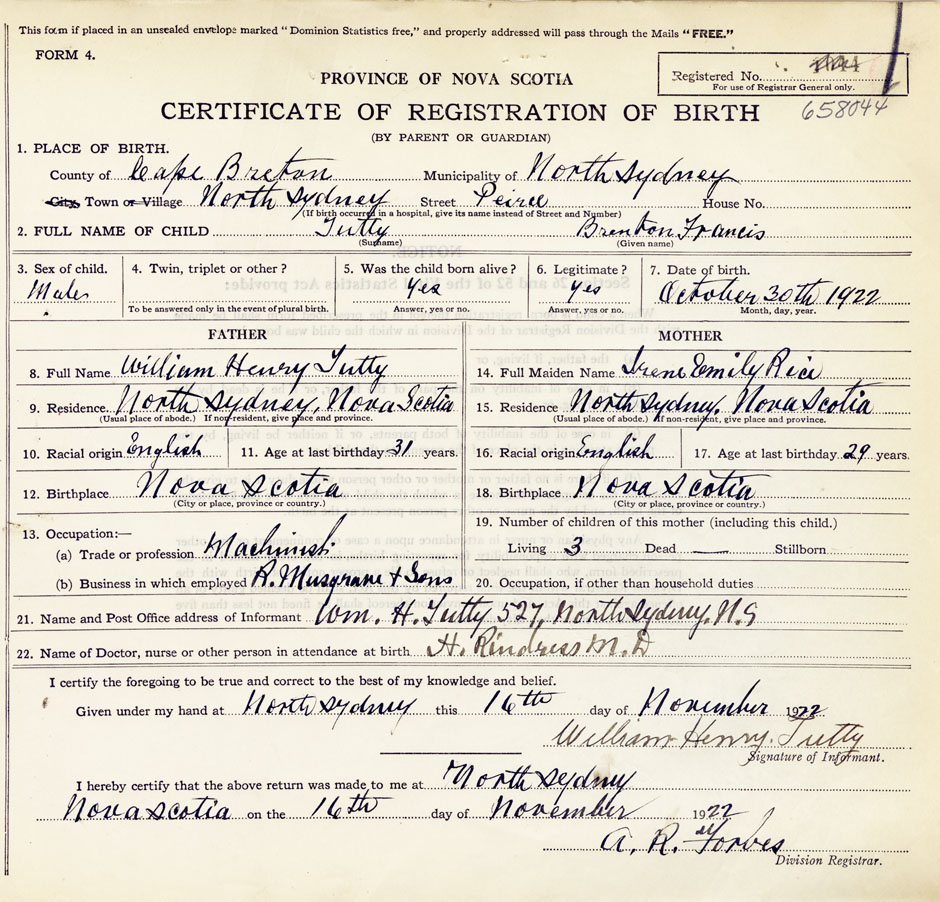 This form if placed in an unsealed envelope marked "Dominion Statistics free," and properly addressed will pass through the Mails "FREE."
FORM 4.
Registered No.
For use of Registrar General only.
658044
PROVINCE OF NOVA SCOTIA
CERTIFICATE OF REGISTRATION OF BIRTH
(BY PARENT OR GUARDIAN)
1. PLACE OF BIRTH.
County of Cape Breton Municipality of North Sydney
City, Town or Village North Sydney Street Peirce House No.
(If birth occurred in a hospital, give its name instead of Street and Number)
2. FULL NAME OF CHILD Tutty Brenton Francis
(Surname) (Given name)
3. Sex of child. 4. Twin, triplet or other? 5. Was the child born alive? 6. Legitimate? 7. Date of birth.
Male Yes Yes October 30th 1922
To be answered only in the event of plural birth. Answer, yes or no. Answer, yes or no. Month, day, year.
FATHER
8. Full Name William Henry Tutty
9. Residence North Sydney, Nova Scotia
(Usual place of abode.) If non-resident, give place and province.
10. Racial origin English 11. Age at last birthday 31 years.
12. Birthplace Nova Scotia
(City or place, province or country.)
13. Occupation:—
(a) Trade or profession Machinist
(b) Business in which employed R. Musgrave + Sons
MOTHER
14. Full Maiden Name Irene Emily Rice
15. Residence North Sydney, Nova Scotia
(Usual place of abode.) If non-resident, give place and province.
16. Racial origin English 17. Age at last birthday 29 years.
18. Birthplace Nova Scotia
(City or place, province or country.)
19. Number of children of this mother (including this child.)
Living 3 Dead — Stillborn
20. Occupation, if other than household duties
21. Name and Post Office address of Informant Wm. H. Tutty 527, North Sydney, N.S
22. Name of Doctor, nurse or other person in attendance at birth H. Rindress M.D
I certify the foregoing to be true and correct to the best of my knowledge and belief.
Given under my hand at North Sydney this 16th day of November 1922
William Henry Tutty
Signature of Informant.
I hereby certify that the above return was made to me at North Sydney
Nova Scotia on the 16th day of November 1922
A. R. Forbes
Division Registrar.